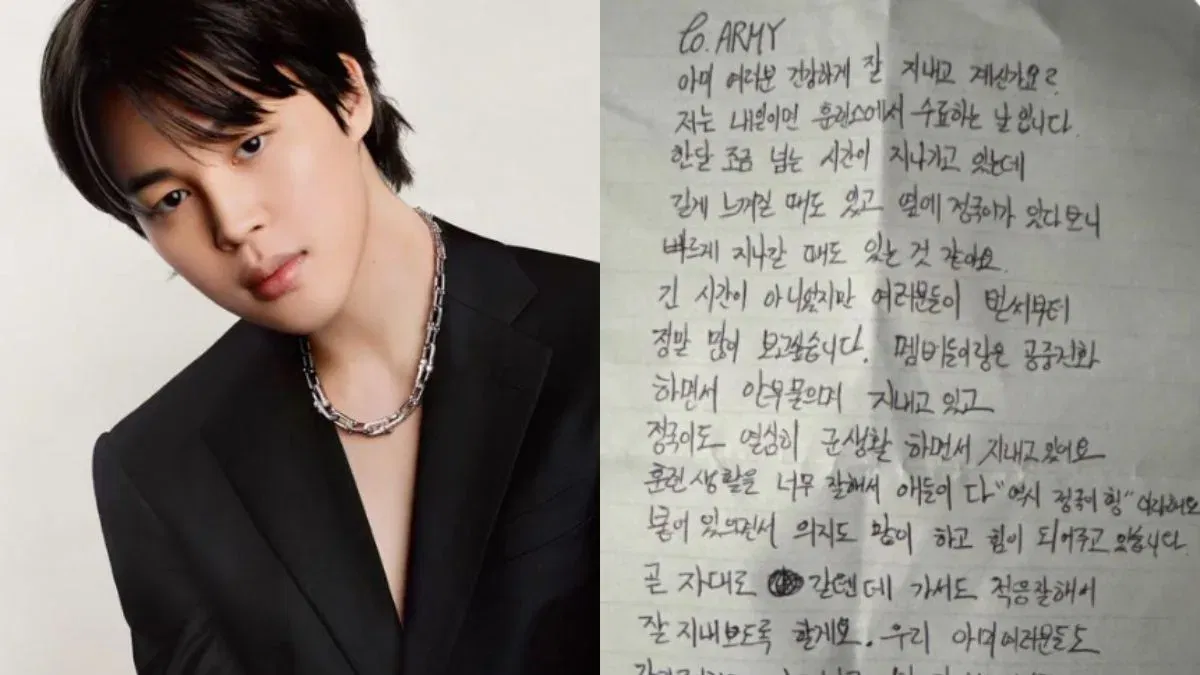 to. ARMY
아미 여러분 건강하게 잘 지내고 계신가요?
저는 내일이면 훈련소에서 수료하는 날입니다.
한달 조금 넘는 시간이 지나가고 있는데
길게 느껴질 때도 있고 옆에 정국이가 있다보니
빠르게 지나갈 때도 있는 것 같아요.
긴 시간이 아니었지만 여러분들이 벌써부터
정말 많이 보고싶습니다. 멤버들이랑은 공중전화
하면서 안부 물으며 지내고 있고
정국이도 열심히 군생활 하면서 지내고 있어요
훈련 생활을 너무 잘해서 애들이 다 "역시 정국이 형" 이라해요
붙어 있으면서 의지도 많이 하고 힘이 되어주고 있습니다
곧 자대로 갈텐데 가서도 적응잘해서
잘 지내보도록 할게요. 우리 아미여러분들도